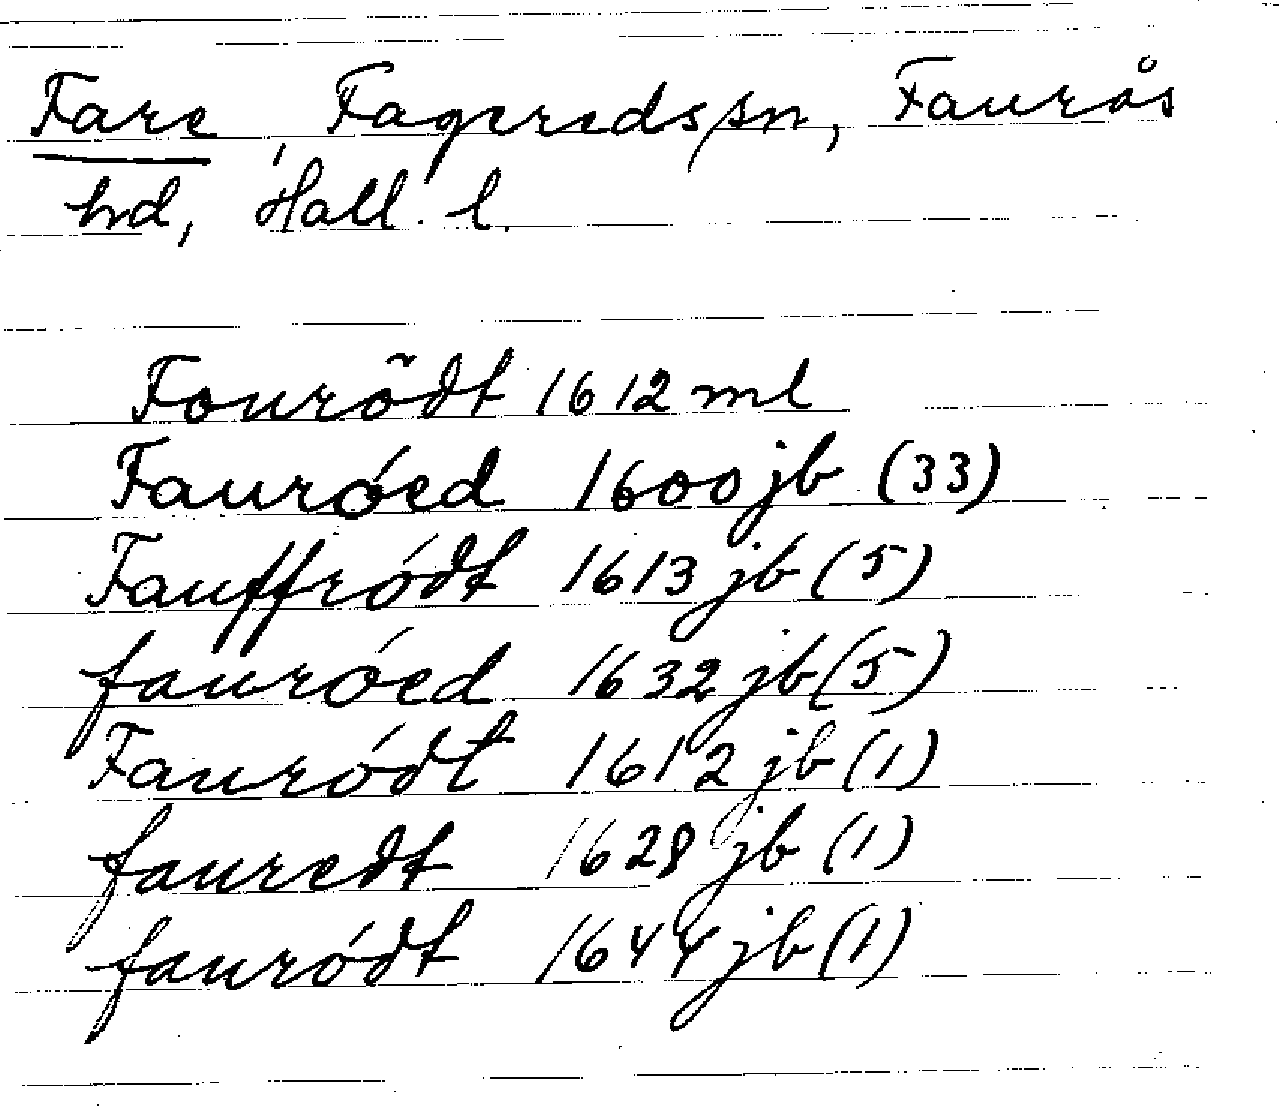 Fare, Fagereds sn, Faurås
hd, Hall. l.
Fourödt 1612 ml
Fauróed 1600 jb (33)
Fauffródt 1613 jb (5)
fauróed 1632 jb (5)
Fauródt 1612 jb (1)
fauredt 1628 jb (1)
fauródt 1644 jb (1)